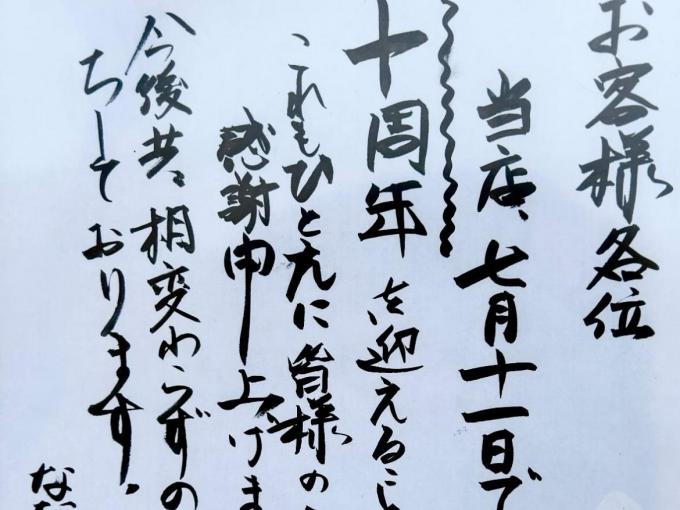 お客様各位
当店、七月十一日で
十周年を迎えるこ
これもひとえに皆様の
感謝申し上げま
今後共、相変わらずの
ちしております。
な